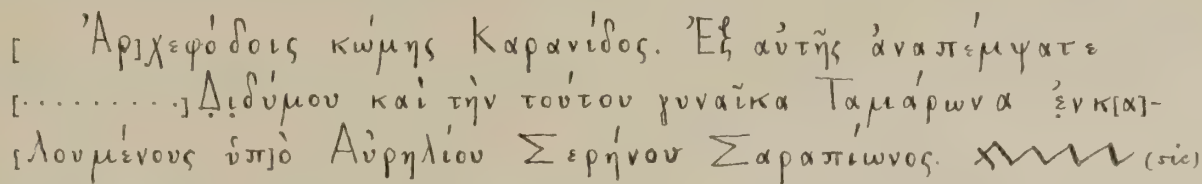 [ Ἀρ]χεφόδοις κώμης Καρανίδος. Ἐξ αὐτῆς ἀναπέμψατε
[.........]Δ̣ι̣δύμου καὶ τὴν τούτου γυναῖκα Ταμάρωνα ἐ̣νκ[α]-
[λουμένους ὑπ]ὸ Αὐρηλίου Σερήνου Σαραπίωνος. (sic)